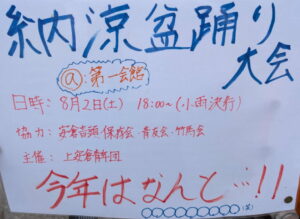 納涼盆踊り
大会
@第一会館
日時：8月2日(土) 18:00〜(小雨決行)
協力：安倉吉頭・保存会・青友会・竹馬会
主催：上安倉青年団
今年はなんと…!!
○○○○○○○○(笑)